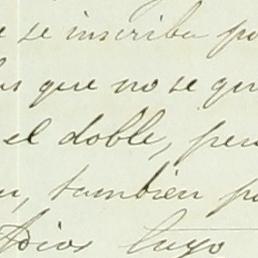 e se inscriba po
que no se qu
el doble, per
n, tambien p
Adios Cuyo